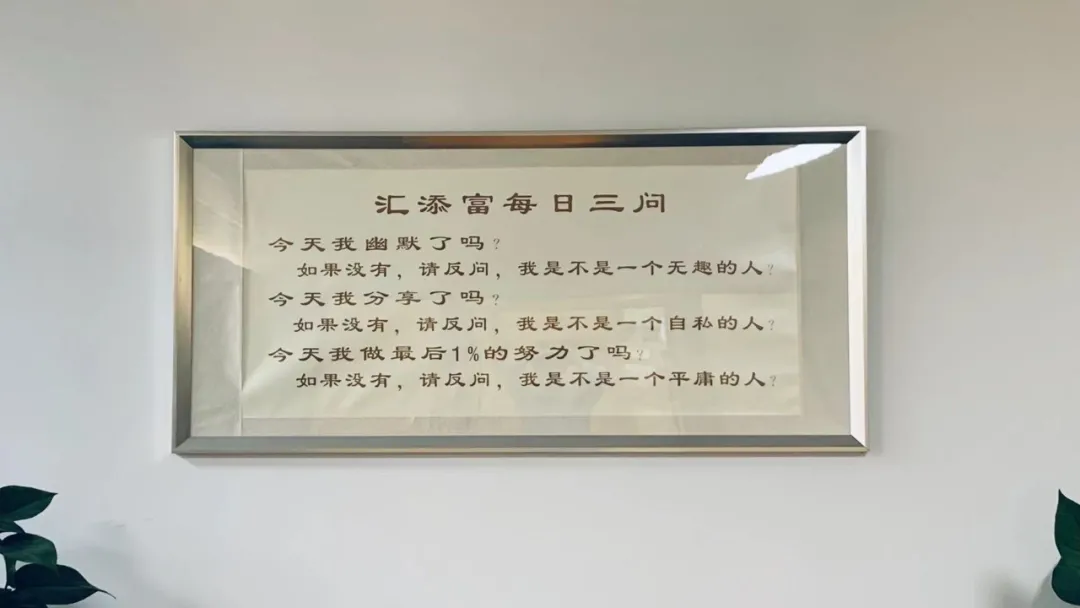 汇添富每日三问
今天我幽默了吗？
如果没有，请反问，我是不是一个无趣的人？
今天我分享了吗？
如果没有，请反问，我是不是一个自私的人？
今天我做最后1%的努力了吗？
如果没有，请反问，我是不是一个平庸的人？